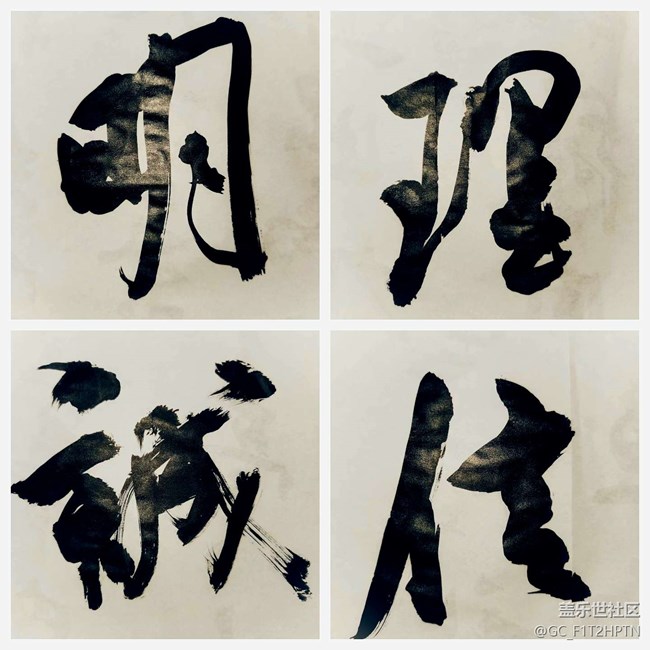 明理
誠信
盖乐世社区
@GC_F1T2HPTN